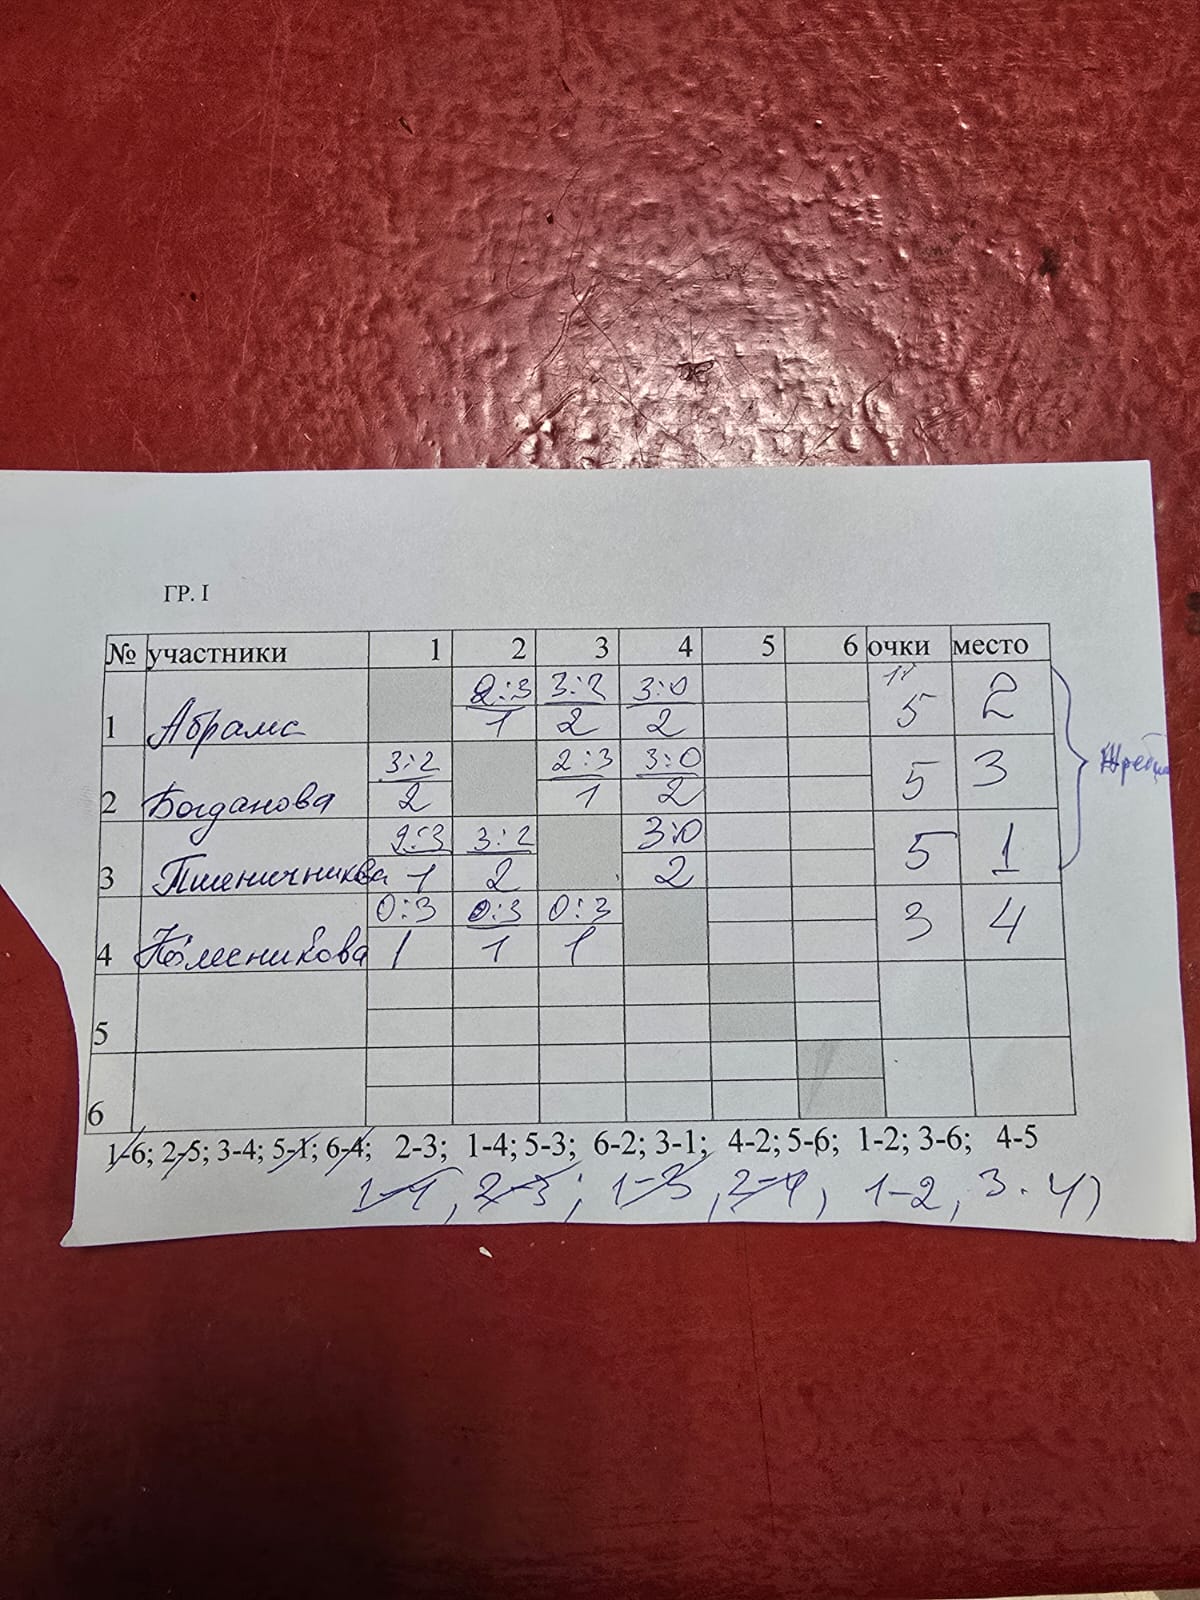 ГР. I
№ участники 1 2 3 4 5 6 очки место
1 Абрамс 2:3 3:2 3:0 5 2
1 2 2
2 Богданова 3:2 2:3 3:0 5 3
2 1 2
3 Пшеничникова 2:3 3:2 3:0 5 1
1 2 2
4 Колесникова 0:3 0:3 0:3 3 4
1 1 1
5
6
1-6; 2-5; 3-4; 5-1; 6-4; 2-3; 1-4; 5-3; 6-2; 3-1; 4-2; 5-6; 1-2; 3-6; 4-5
1-4, 2-3; 1-3, 2-4, 1-2, 3-4)